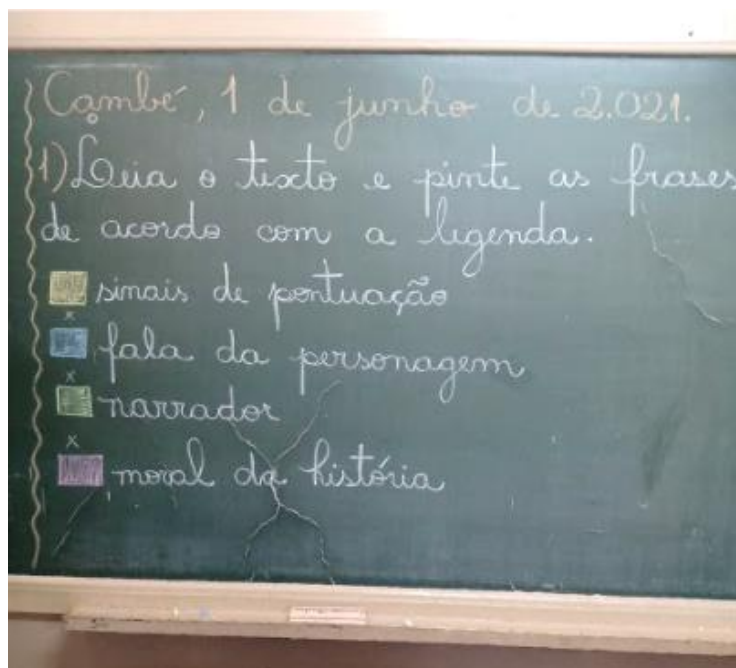 Cambé, 1 de junho de 2.021.
1) Leia o texto e pinte as frases
de acordo com a legenda.
sinais de pontuação
x
fala da personagem
x
narrador
x
moral da história